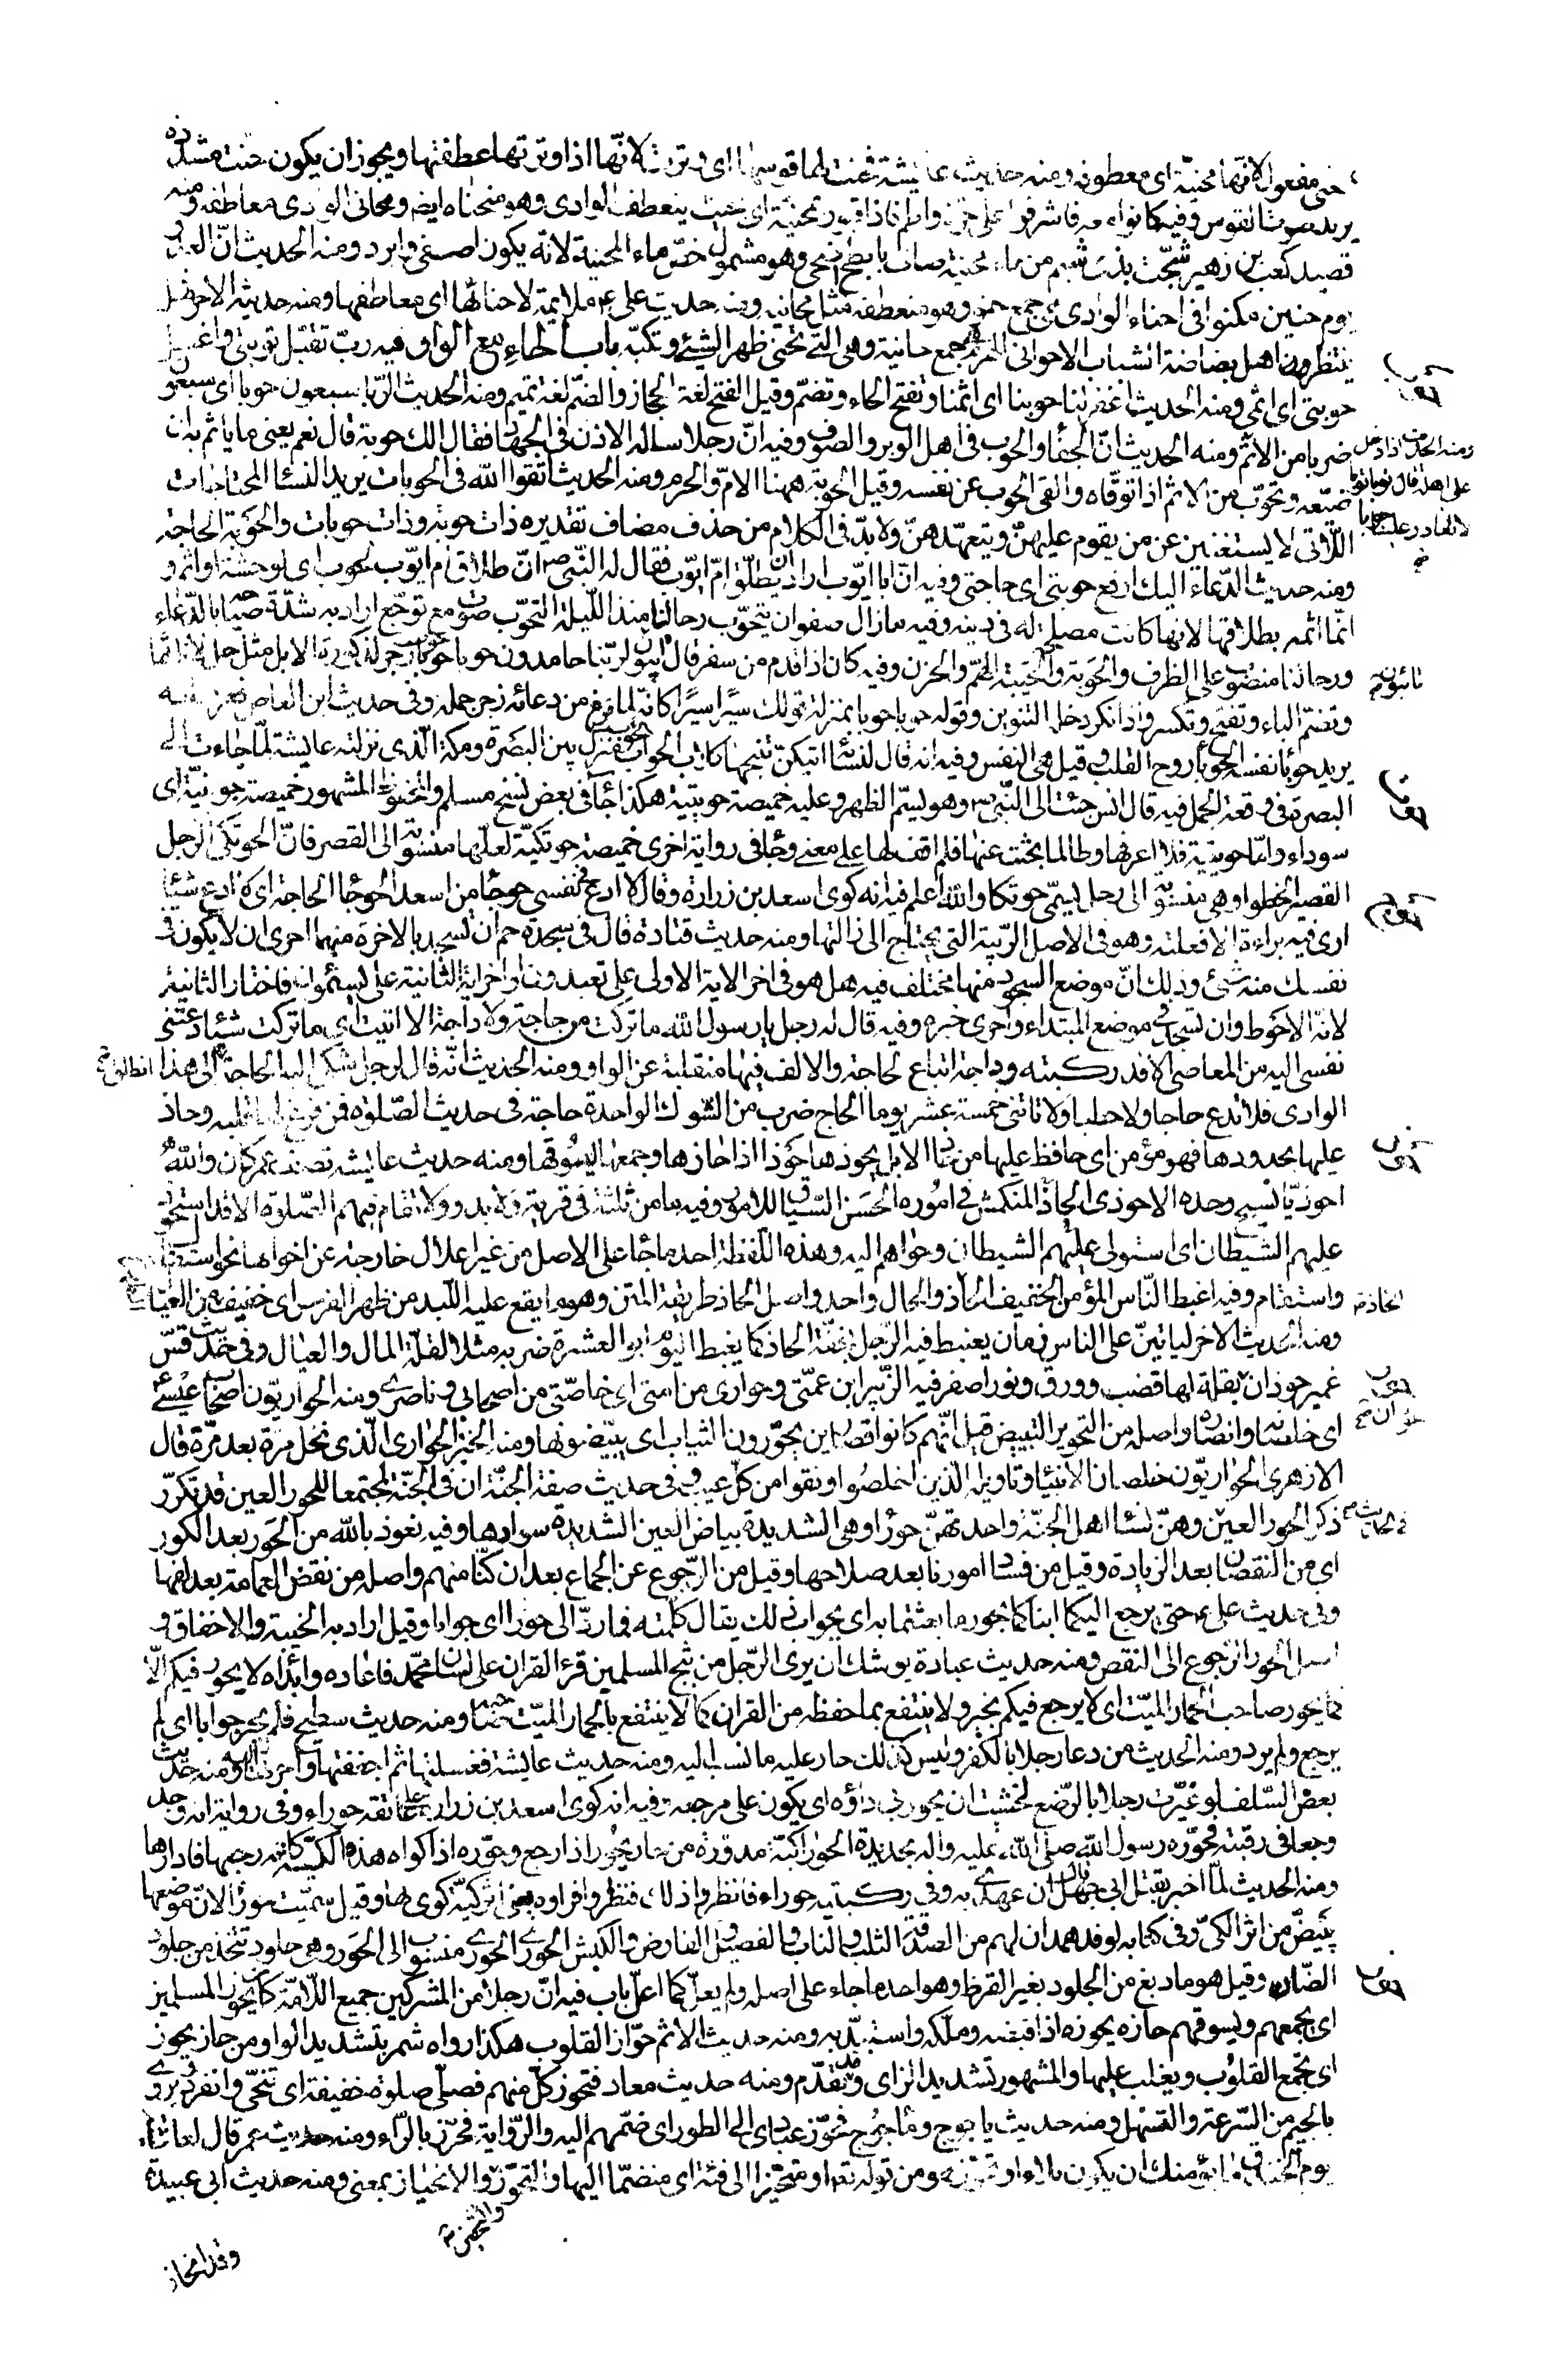 حنى مفعول لانها محنية اى معطوفة ومنه حديث عايشة فحنت لها قوسها اى وترت لانها اذا وترتها عطفتها ويجوز ان يكون حنت مشددة
يريد صوت القوس وفيه كانوا معه فاشرفوا على حرة واقم فاذا قبور بمحنية اى بحيث ينعطف الوادى وهو منحناه ايضا ومحانى الوادى معاطفه ومنه
قصيد كعب بن زهير شجّت بذى شبم من ماء محنية صاف بابطح اضحى وهو مشمول خصّ ماء المحنية لانه يكون اصفى وابرد ومنه الحديث انّ العدو
يوم حنين مكنوا فى احناء الوادى هى جمع حنو وهو منعطفه مثل محانيه ومنه حديث على ع ملايمة لاحنائها اى معاطفها ومنه حديثه الاخر فهل
ينتظرون اهل بضاضة الشباب الا حوانى الهرم جمع حانية وهى التى تحنى ظهر الشيئ وتكبّه باب الحاء مع الواو فيه ربّ تقبّل توبتى واغسل
حوبتى اى اثمى ومنه الحديث اغفر لنا حوبنا اى اثمنا وتفتح الحاء وتضمّ وقيل الفتح لغة الحجاز والضمّ لغة تميم ومنه الحديث الرّبا سبعون حوبا اى سبعون
ضربا من الاثم ومنه الحديث انّ الجفا والحوب فى اهل الوبر والصوف وفيه انّ رجلا ساله الاذن فى الجهاد فقال الك حوبة قال نعم يعنى ما ياثم به ان
ضيّعه وتحوّب من الاثم اذا توقّاه والقى الحوب عن نفسه وقيل الحوبة ههنا الامّ والحرم ومنه الحديث اتقوا الله فى الحوبات يريد النساء المحتاجات
اللّاتى لا يستغنين عن من يقوم عليهنّ ويتعهّدهنّ ولا بدّ فى الكلام من حذف مضاف تقديره ذات حوبة وذات حوبات والحوبة الحاجة
ومنه حديث الدّعاء اليك ارفع حوبتى اى حاجتى وفيه انّ ابا ايّوب اراد ان يطلّق امّ ايّوب فقال له النّبى ص انّ طلاق امّ ايّوب لحوب اى لوحشة او اثم و
انّما اثمه بطلاقها لانها كانت مصلحة له فى دينه وفيه ما زال صفوان يتحوّب رحالنا منذ اللّيلة التحوّب صوت مع توجّع اراد به شدّة صياحه بالدّعاء
ورحالنا منصوب على الظرف والحوبة والحيبة الهمّ والحزن وفيه كان اذا قدم من سفر قال آئبون لربّنا حامدون حوبا حوبا حوب زجر لذكورة الابل مثل حل لاناثها
وتضمّ الباء وتفتح وتكسر واذا نكر دخله التنوين وقوله حوبا حوبا بمنزلة قولك سيرًا سيرًا كانّه لما فرغ من دعائه زجر جمله وفى حديث ابن العاص فعرف انه
يريد حوباء نفسه الحوباء روح القلب وقيل هى النفس وفيه انه قال لنسائه ايتكنّ تنبحها كلاب الحوأب منزل بين البصرة ومكة الّذى نزلته عايشة لمّا جاءت الى
البصرة فى وقعة الجمل فيه قال انس جئت الى النّبى ص وهو يسم الظهر وعليه خميصة حويتية هكذا جاء فى بعض نسخ مسلم والمحفوظ المشهور خميصة جونيّة اى
سوداء وامّا حويتية فلا اعرفها وطالما بحثت عنها فلم اقف لها على معنى وجاء فى رواية اخرى خميصة حوتكيّة لعلّها منسوبة الى القصر فانّ الحوتكىّ الرجل
القصير الخطو او هى منسوبة الى رجل يسمّى حوتكا والله اعلم فيه انه كوى اسعد بن زرارة وقال لا ادع فى نفسى حوجا من اسعد الحوجا الحاجة اى لا ادع شيئا
ارى فيه براءة الا فعلته وهو فى الاصل الرّيبة التى يحتاج الى ازالتها ومنه حديث قتادة قال فى سجدة حم ان تسجد بالاخرة منهما احرى ان لا يكون فى
نفسك منه شئ وذلك انّ موضع السجود منها مختلف فيه هل هو فى اخر الاية الاولى على تعبدون او اخر الاية الثانية على يسئمون فاختار الثانية
لانّه الاحوط وان تسجد فى موضع المبتداء واحرى خبره وفيه قال له رجل يا رسول الله ما تركت من حاجة ولا داجة الا اتيت اى ما تركت شيئا دعتنى
نفسى اليه من المعاصى الا قد ركبته وداجة اتباع لحاجة والالف فيها منقلبة عن الواو ومنه الحديث انّه قال لرجل شكى اليه الحاجة انطلق الى هذا
الوادى فلا تدع حاجا ولا حطبا ولا تاتنى خمسة عشر يوما الحاج ضرب من الشوك الواحدة حاجة فى حديث الصّلوة فمن فرغ لها قلبه وحاذ
عليها بحدودها فهو مؤمن اى حافظ عليها من حاذ الابل يحوذها حوذا اذا حازها وجمعها ليسوقها ومنه حديث عايشة تصف عمر كان والله
احوذيّا نسيج وحده الاحوذى الجادّ المنكمش فى اموره الحسن السّياق للامور وفيه ما من ثلثة فى قرية ولا بدو ولا تقام فيهم الصّلوة الا قد استحوذ
عليهم الشّيطان اى استولى عليهم الشيطان وحواهم اليه وهذه اللّفظة احد ما جاء على الاصل من غير اعلال خارجة عن اخواتها نحو استقال
واستقام وفيه اغبط النّاس المؤمن الخفيف الحاذ الحاذ والحال واحد واصل الحاذ طريقة المتن وهو ما يقع عليه اللّبد من ظهر الفرس اى خفيف من العيال
ومنه الحديث الاخر لياتينّ على الناس زمان يغبط فيه الرّجل بخفّة الحاذ كما يغبط اليوم ابو العشرة ضربه مثلا لقلّة المال والعيال وفى حديث قسّ
غمير حوذان بقلة لها قضب وورق ونور اصفر فيه الزّبير ابن عمّتى وحوارى من امتى اى خاصّتى من اصحابى وناصرى ومنه الحواريّون اصحاب عيسى
اى خلصائه وانصاره واصله من التحوير التبييض قيل انّهم كانوا قصارين يحوّرون الثياب اى يبيّضونها ومنه الخبز الحوارى الّذى نخل مرة بعد مرّة قال
الازهرى الحواريّون خلصان الانبيا وتاويله الّذين اخلصوا ونقوا من كلّ عيب وفى حديث صفة الجنّة ان فى الجنّة لمجتمعا للحور العين قد تكرّر
ذكر الحور العين وهنّ نساء اهل الجنّة واحدتهنّ حوراء وهى الشديدة بياض العين الشديدة سوادها وفيه نعوذ بالله من الحور بعد الكور
اى من النقصان بعد الزيادة وقيل من فساد امورنا بعد صلاحها وقيل من الرّجوع عن الجماع بعد ان كنّا منهم واصله من نقض العمامة بعد لفها
وفى حديث على ع حتى يرجع اليكما ابناكما بحور ما بعثتما به اى بجواب ذلك يقال كلّمته فما ردّ الى حورا اى جوابا وقيل اراد به الخيبة والاخفاق و
اصل الحور الرّجوع الى النقص ومنه حديث عبادة يوشك ان يرى الرّجل من ثبج المسلمين قرء القران على لسان محمّد فاعاده وابداه لا يحور فيكم الّا
كما يحور صاحب الحمار الميّت اى لا يرجع فيكم بخير ولا ينتفع بما حفظه من القران كما لا ينتفع بالحمار الميّت صاحبه ومنه حديث سطيح فلم يحر جوابا اى لم
يرجع ولم يرد ومنه الحديث من دعا رجلا بالكفر وليس كذلك حار عليه ما نسب اليه ومنه حديث عايشة فغسلتها ثم اجففتها واحرتها اليه ومنه حديث
بعض السّلف لو عيّرت رجلا بالرّضع لخشيت ان يحور بى داؤه اى يكون على مرجعه وفيه انه كوى اسعد بن زرارة على عاتقه حوراء وفى رواية انه وجد
وجعا فى رقبته فحوّره رسول الله صلى الله عليه واله بحديدة الحوراء كيّة مدوّرة من حار يحور اذا رجع وحوّره اذا كواه هذه الكيّة كانّه رجعها فادارها
ومنه الحديث لمّا اخبر بقتل ابى جهل قال ان عهدى به وفى ركبتيه حوراء فانظروا ذلك فنظروا فراوه يعنى اثر كيّة كوى بها وقيل سمّيت حورا لانّ موضعها
يبيضّ من اثر الكىّ وفى كتابه لوفد همدان لهم من الصدقة الثلب والناب والفصيل والفارض والكبش الحورى الحورى منسوب الى الحور وهى جلود تتّخذ من جلود
الضّان وقيل هو ما دبغ من الجلود بغير القرظ وهو احد ما جاء على اصله ولم يعلّ كما اعلّ باب فيه انّ رجلا من المشركين جميع اللّامة كان يحوز المسلمين
اى يجمعهم ويسوقهم حازه يحوزه اذا قبضه وملكه واستبدّ به ومنه حديث الاثم حوّاز القلوب هكذا رواه شمر بتشديد الواو من حاز يحوز
اى يجمع القلوب ويغلب عليها والمشهور تشديد الزاى وقد تقدّم ومنه حديث معاذ فتحوز كلّ منهم فصلّى صلوة خفيفة اى تنحّى وانفرد ويروى
بالجيم من السّرعة والتسهل ومنه حديث ياجوج وماجوج فحوّز عبادى الى الطور اى ضمّهم اليه والرّواية فحرّز بالرّاء ومنه حديث عمر قال لعايشة
يوم الخندق ما يؤمنك ان يكون بلاء او تحوّز هو من قوله تعه او متحيّزا الى فئة اى منضمّا اليها والتحوّز والتحيّز والانحياز بمعنى ومنه حديث ابى عبيدة
وقد انحاز
حوب
ومنه الحديث اذا دخل
على اهله قال توبا توبا
لا تغادر علينا حوبا
تائبون
حوت
حوج
حوذ
الحاذ
حور
فى الحديث
حوز